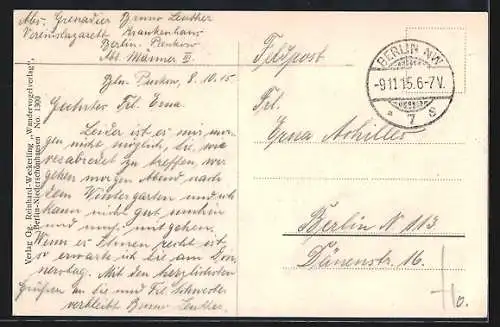 Abs. Grenadier Bruno Leuther
Vereinslazarett Krankenhaus
Berlin-Pankow
Abt. Männer II
Bln. Pankow, 8.10.15
Geehrtes Frl. Erna
Leider ist es mir mor-
gen nicht möglich, Sie, wie
verabredet zu treffen, wir
gehen morgen Abend nach
dem Wintergarten und ich
kann nicht gut umhin
und muß mit gehen.
Wenn es Ihnen recht ist,
so erwarte ich Sie am Don-
nerstag. Mit den herzlichsten
Grüßen an Sie und Frl. Schwester
verbleibt Bruno Leuther.
Feldpost
BERLIN NW
-9.11.15.6-7V.
* 7 s
Frl.
Erna Achilles
Berlin N 113
Dänenstr. 16.
Verlag Og. Reinhard-Weckerling „Wandervogelverlag",
Berlin-Niederschönhausen No. 1303